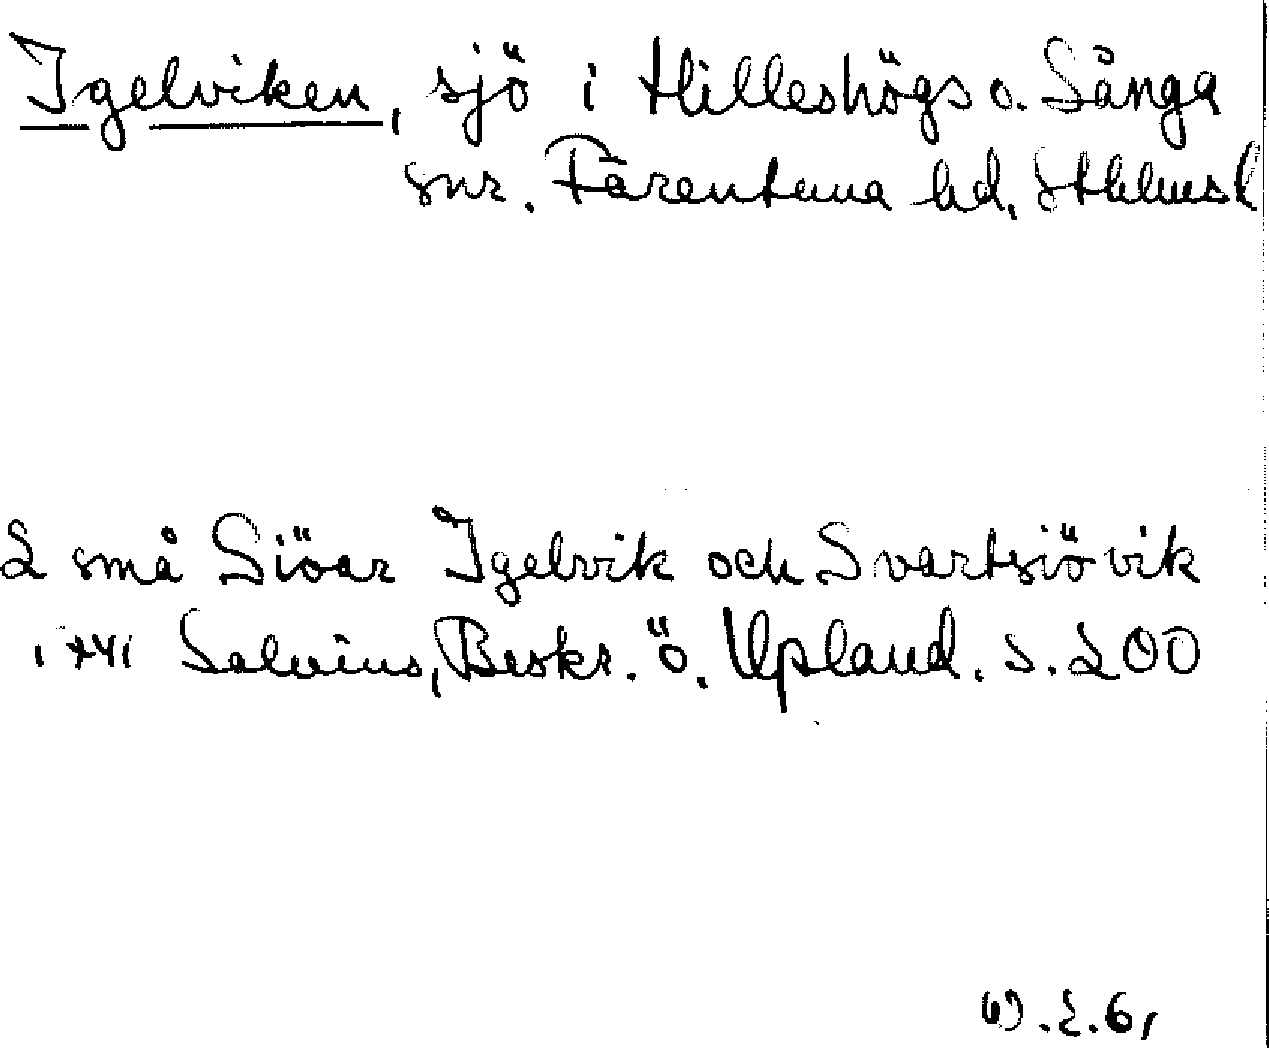 Igelviken, sjö i Hilleshögs o. Sånga
snr. Färentuna hd, Sthlmsl
2 små Siöar Igelvik och Svartsiövik
1741 Salvius, Beskr. ö. Upland. S. 200